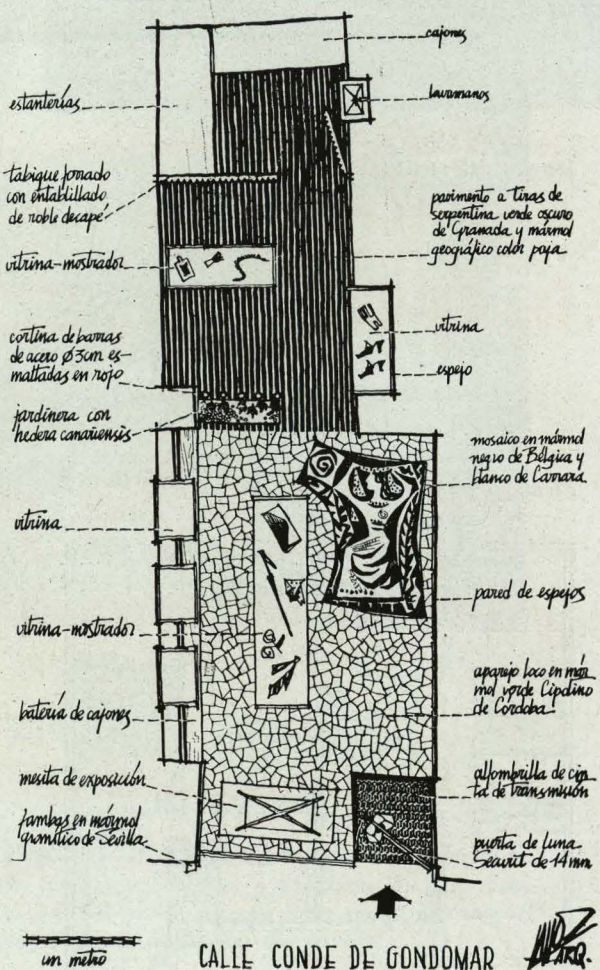 cajones
estanterías
lavamanos
tabique forrado
con entablillado
de roble decapé
pavimento a tiras de
serpentina verde oscuro
de Granada y mármol
geográfico color paja
vitrina-mostrador
vitrina
cortina de barras
de acero Ø 3cm es-
maltadas en rojo
espejo
jardinera con
hedera canariensis
mosaico en mármol
negro de Bélgica y
blanco de Carrara
vitrina
pared de espejos
vitrina-mostrador
aparejo loco en már
mol verde Cipolino
de Córdoba
batería de cajones
mesita de exposición
alfombrilla de cin
ta de transmisión
jambas en mármol
granítico de Sevilla
puerta de luna
Securit de 14 mm
un metro
CALLE CONDE DE GONDOMAR
ARQ.